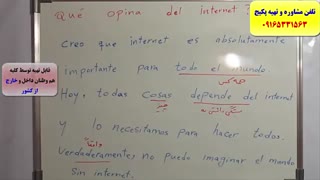 Qué opina del internet?
تلفن مشاوره و تهیه پکیج
۰۹۱۶۵۳۳۱۵۶۳
creo que internet es absolutamente
importante para todo el mundo.
همه کس
قابل تهیه توسط کلیه
هم وطنان داخل و خارج
از کشور
Hoy, todas cosas depende del internet
چیز
بستگی داشتن
y lo necesitamos para hacer todos.
واقعا
Verdaderamente, no puedo imaginar el mundo
Sin internet.